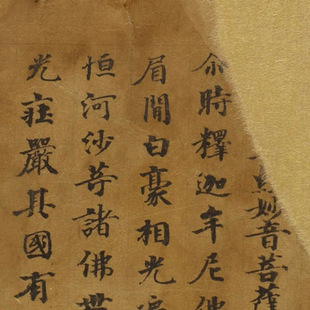 妙音菩薩
尒時釋迦牟尼佛
眉間白毫相光遍
恒河沙等諸佛世
光莊嚴其國有